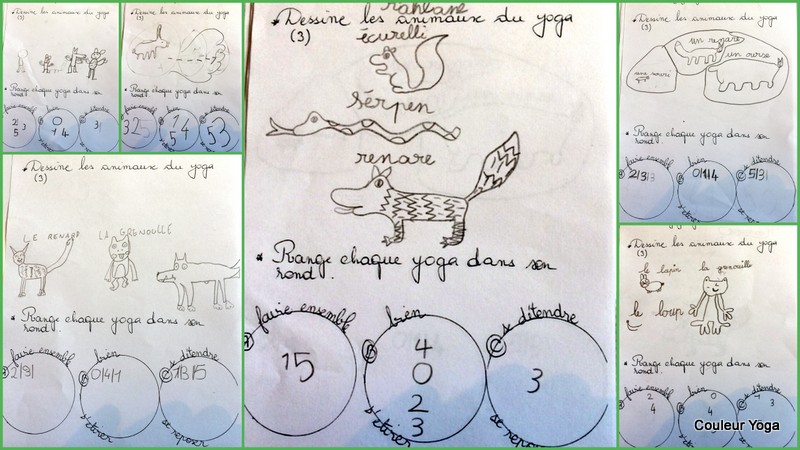 Dessine les animaux du yoga
(3)
Range chaque yoga dans son
rond.
faire ensemble
bien
se détendre
Dessine les animaux du yoga
(3)
Range chaque yoga dans son
rond.
325
1 4
5 4
53
Dessine les animaux du yoga
(3)
LE RENARD LA GRENOUILLE
Range chaque yoga dans son
rond.
faire ensemble
bien
s'étirer
C se détendre
se reposer
2/9/
0/4/1
Dessine les animaux du yoga
(3)
écurelli
sérpen
renare
Range chaque yoga dans son
rond.
A faire ensemble
15
B bien
s'étirer
4
0
2
3
C se détendre
3
Dessine les animaux du yoga
(3)
un renare
un ourse
Range chaque yoga dans son
rond.
faire ensemble
2/3/3
bien
s'étirer
0/1/4
C se détendre
se reposer
5/3/
Dessine les animaux du yoga
(3)
le lapin la grenouille
le loup
Range chaque yoga dans son
rond.
A faire ensemble
2
4
B bien
0
4
C se détendre
3
Couleur Yoga